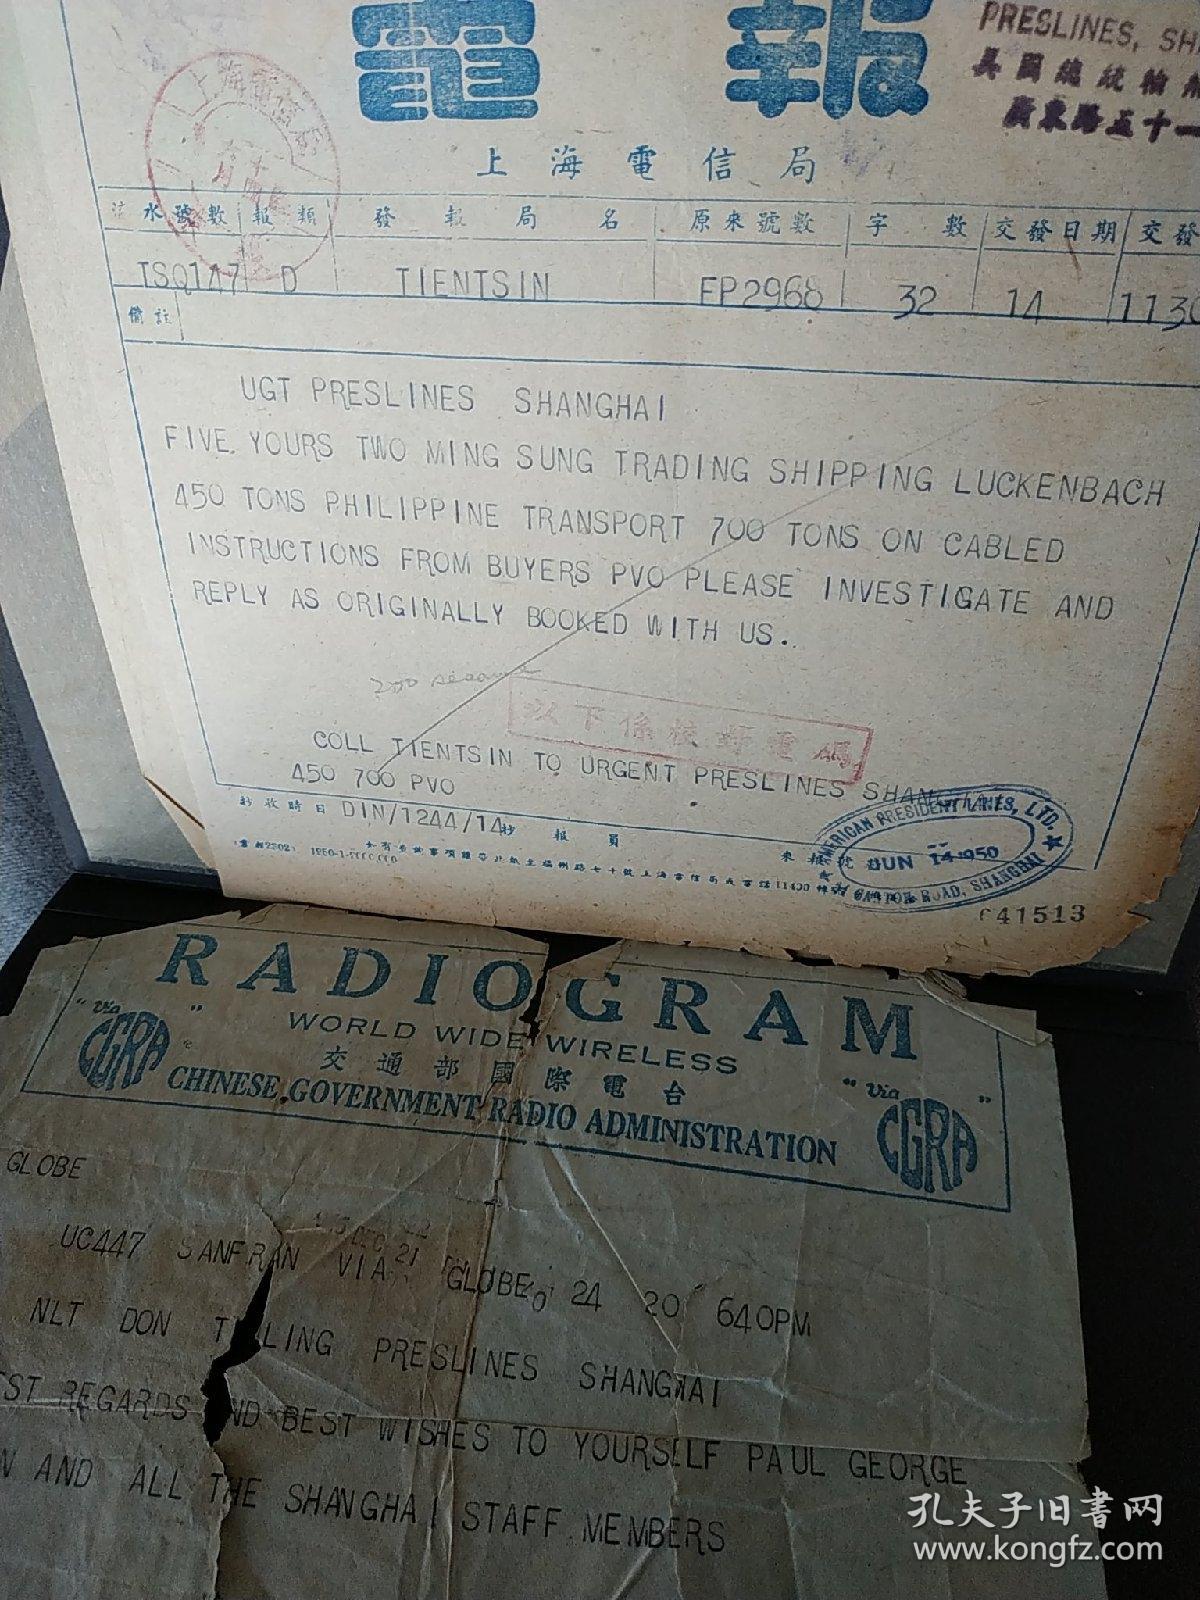 電報
PRESLINES, SH
美國總統輪
廣東路五十一
上海電信局
上海電信局
流水號數 報類 發報局名 原來號數 字數 交發日期 交發
TSQ147 D TIENTSIN FP2968 32 14 1130
備註
UGT PRESLINES SHANGHAI
FIVE. YOURS TWO MING SUNG TRADING SHIPPING LUCKENBACH
450 TONS PHILIPPINE TRANSPORT 700 TONS ON CABLED
INSTRUCTIONS FROM BUYERS PVO PLEASE INVESTIGATE AND
REPLY AS ORIGINALLY BOOKED WITH US.
以下係校對電碼
COLL TIENTSIN TO URGENT PRESLINES SHAN
450 700 PVO
抄收時日 DIN/1244/14 抄報員
AMERICAN PRESIDENT LINES, LTD.
JUN 14 1950
CANTON ROAD, SHANGHAI
641513
RADIOGRAM
WORLD WIDE WIRELESS
交通部國際電台
CHINESE GOVERNMENT RADIO ADMINISTRATION
"via CGRA"
"via CGRA"
GLOBE
UC447 SANFRAN VIA GLOBE 24 20 640PM
NLT DON T LING PRESLINES SHANGHAI
ST REGARDS ND BEST WISHES TO YOURSELF PAUL GEORGE
N AND ALL THE SHANGHAI STAFF MEMBERS
孔夫子旧书网
www.kongfz.com